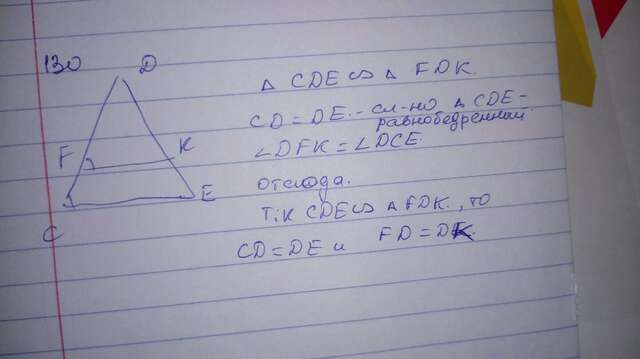 130
D
F
K
C
E
△ CDE ∽ △ FDK.
CD = DE. - сл-но △ CDE -
равнобедренный.
∠DFK = ∠DCE.
Отсюда.
Т.к CDE ∽ △ FDK, то
CD = DE и FD = DK.